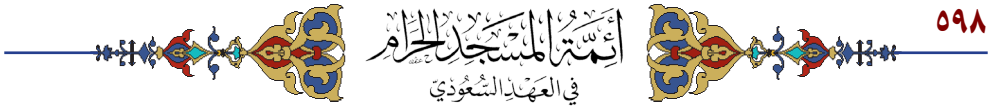 ٥٩٨
أَئِمَّةُ المَسْجِدِ الحَرَامِ
فِي العَهْدِ السُّعُودِيِّ